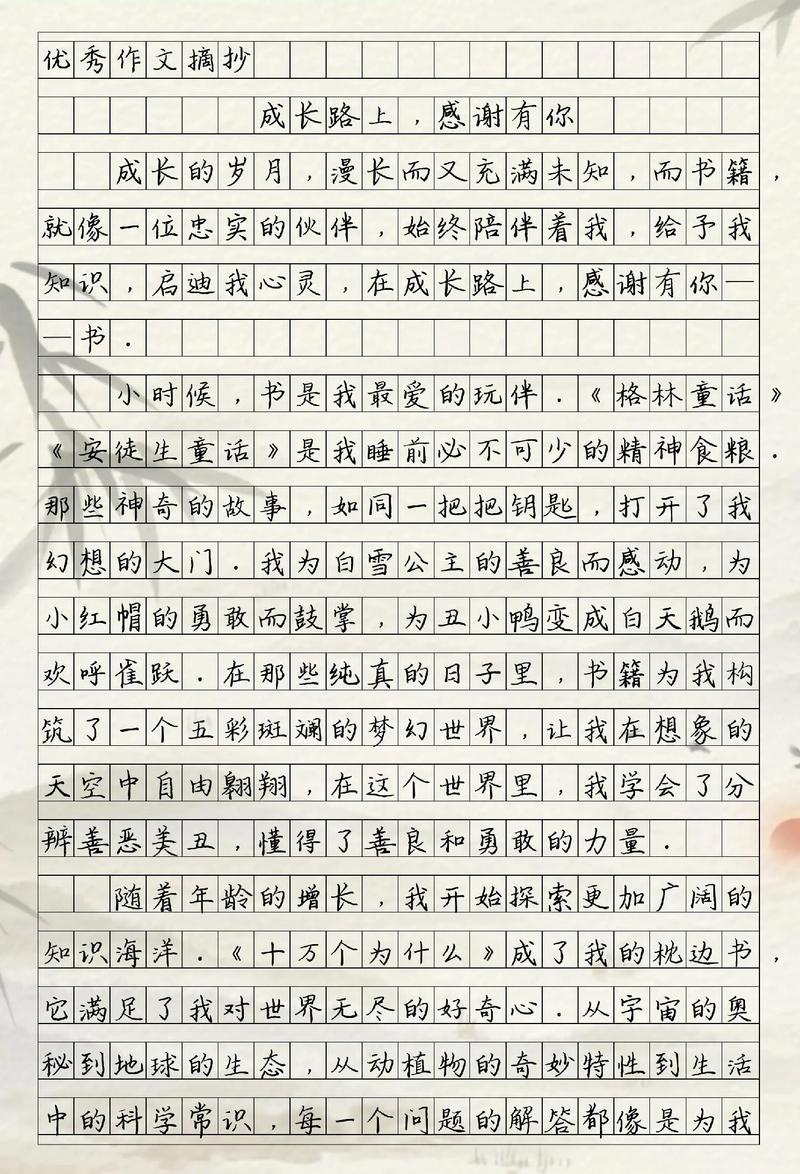 优秀作文摘抄
成长路上，感谢有你
成长的岁月，漫长而又充满未知，而书籍，
就像一位忠实的伙伴，始终陪伴着我，给予我
知识，启迪我心灵，在成长路上，感谢有你—
—书．
小时候，书是我最爱的玩伴．《格林童话》
《安徒生童话》是我睡前必不可少的精神食粮．
那些神奇的故事，如同一把把钥匙，打开了我
幻想的大门．我为白雪公主的善良而感动，为
小红帽的勇敢而鼓掌，为丑小鸭变成白天鹅而
欢呼雀跃．在那些纯真的日子里，书籍为我构
筑了一个五彩斑斓的梦幻世界，让我在想象的
天空中自由翱翔，在这个世界里，我学会了分
辨善恶美丑，懂得了善良和勇敢的力量．
随着年龄的增长，我开始探索更加广阔的
知识海洋．《十万个为什么》成了我的枕边书，
它满足了我对世界无尽的好奇心．从宇宙的奥
秘到地球的生态，从动植物的奇妙特性到生活
中的科学常识，每一个问题的解答都像是为我